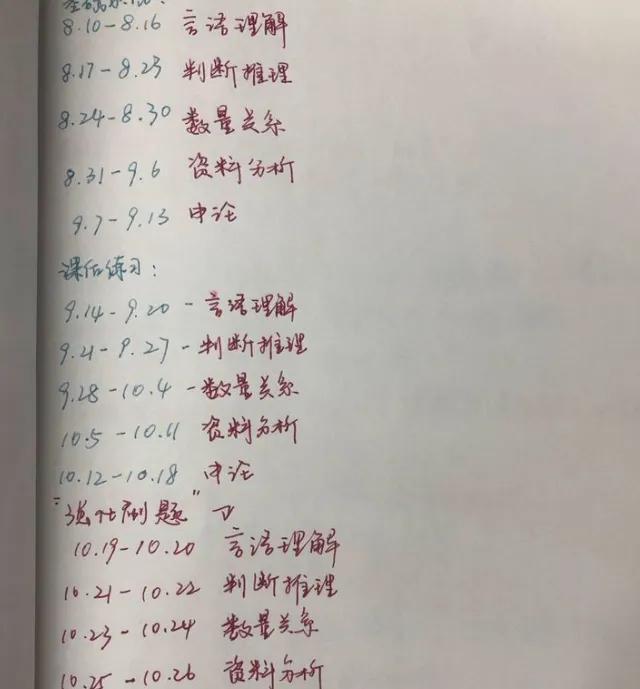 8.10-8.16 言语理解
8.17-8.23 判断推理
8.24-8.30 数量关系
8.31-9.6 资料分析
9.7-9.13 申论
课后练习:
9.14-9.20-言语理解
9.21-9.27-判断推理
9.28-10.4-数量关系
10.5-10.11 资料分析
10.12-10.18 申论
"强化刷题"
10.19-10.20 言语理解
10.21-10.22 判断推理
10.23-10.24 数量关系
10.25-10.26 资料分析